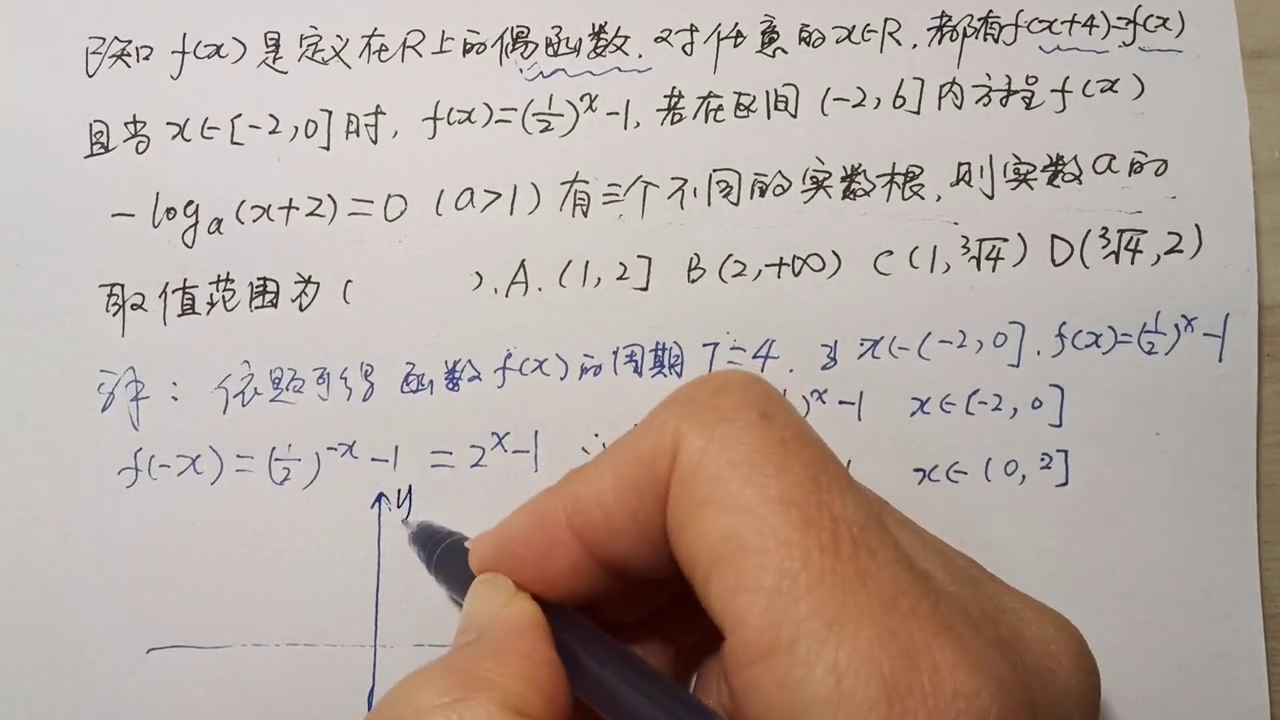 已知 f(x) 是定义在R上的偶函数. 对任意的x∈R, 都有f(x+4)=f(x)
且当 x∈[-2,0]时, f(x)=(1/2)^x-1, 若在区间 (-2,6]内方程f(x)
-log_a(x+2)=0 (a>1) 有三个不同的实数根, 则实数a的
取值范围为( ). A. (1,2] B (2,+∞) C (1,∛4) D(∛4,2)
解: 依题可得 函数f(x)的周期 T=4. 当 x∈(-2,0]. f(x)=(1/2)^x-1
)^x-1 x∈[-2,0]
f(-x)=(1/2)^-x-1 =2^x-1 x∈(0,2]
y